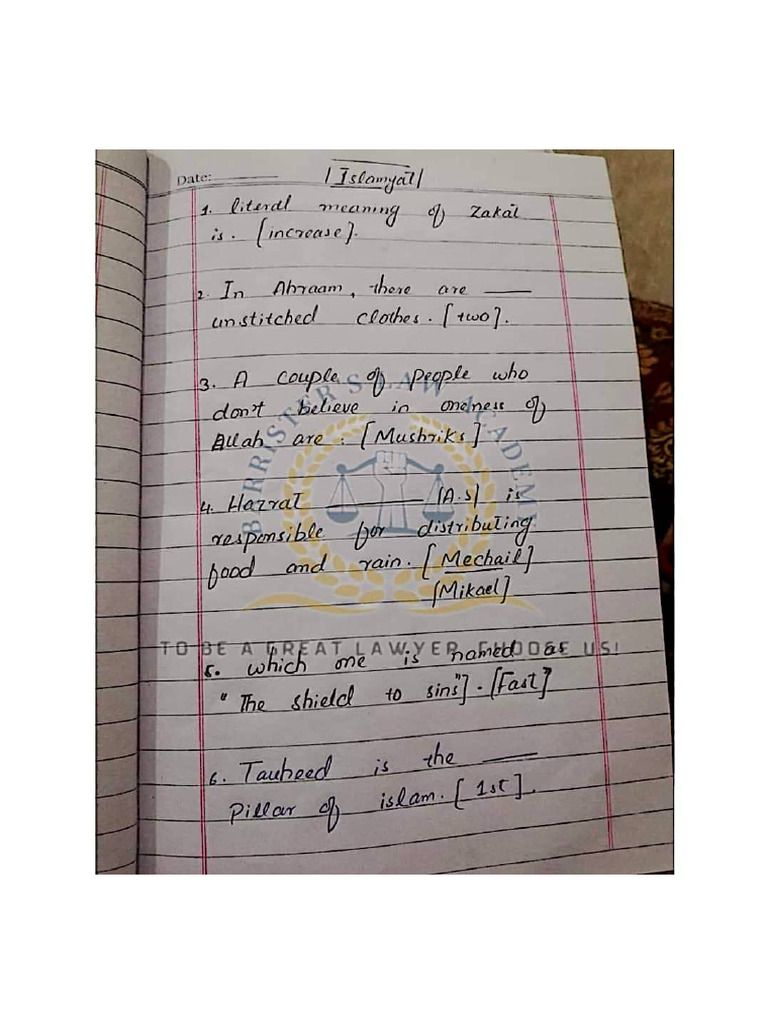 Date:
Islamyat
1. literal meaning of Zakat
is. [increase].
2. In Ahraam, there are ____
unstitched clothes. [two].
3. A couple of people who
don't believe in oneness of
Allah are : [Mushriks]
4. Hazrat ________ (A.S) is
responsible for distributing
food and rain. [Mechail]
[Mikael]
5. which one is named as
"The shield to sins"]. [Fast]
6. Tauheed is the ____
Pillar of islam. [1st].
BARRISTER'S LAW ACADEMY
TO BE A GREAT LAWYER, CHOOSE US!